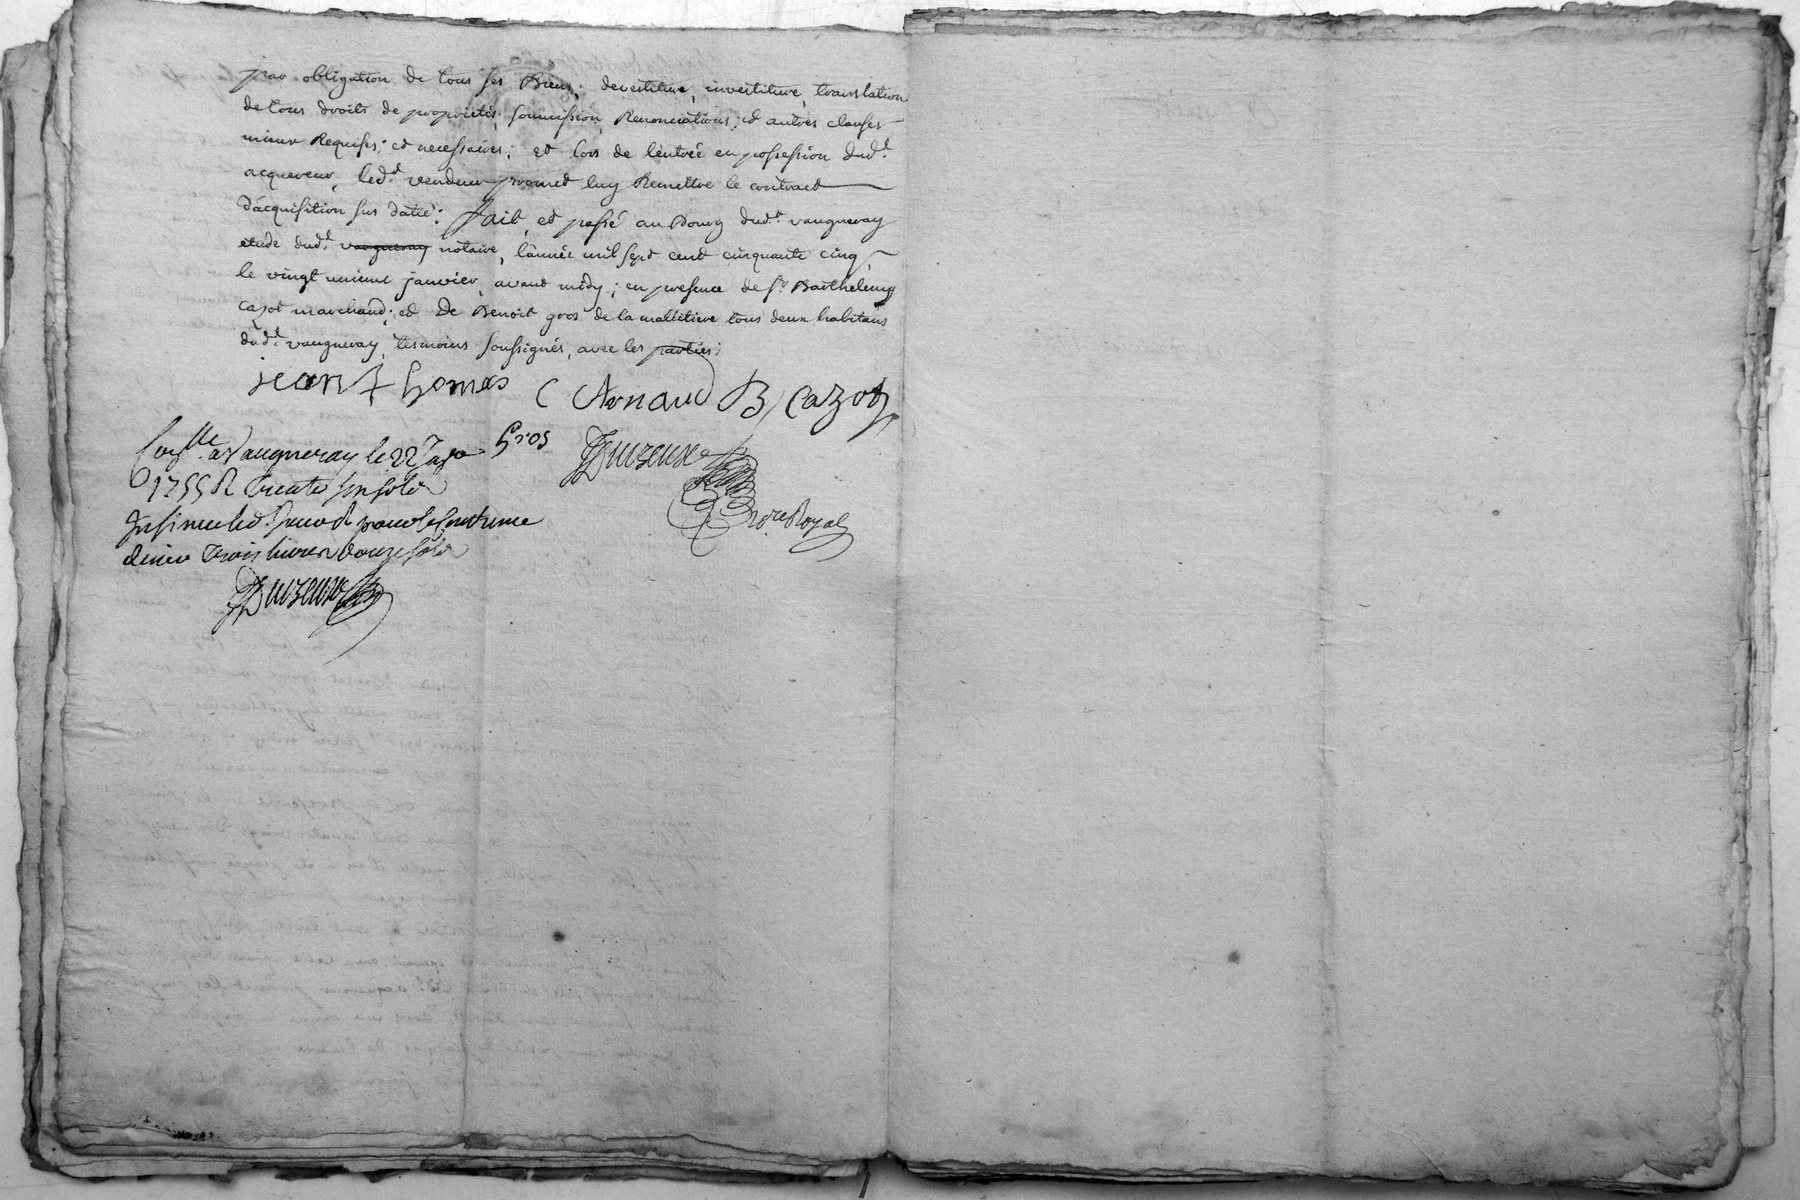 par obligation de tous ses Biens; devestiture, investiture, translation
de tous droits de proprietés, soumission, Renonciations; et autres clauses
mieux Requises; et necessaires; et lors de l'entrée en possession dud.t
acquereur, led.t vendeur promet luy Remettre le contract
d'acquisition sus datté: fait, et passé au Bourg dud.t vaugneray
etude dud.t vaugneray notaire, l'année mil sept cent cinquante cinq,
le vingt unieme janvier, avant midy; en presence de s.r Barthelemy
cazot marchand; et de Benoit gros de la malletiere tous deux habitans
dud.t vaugneray, tesmoins soussignés, avec les parties;
jean thomas C Arnaud B, Cazot
Gros
Duzeux
No.re Royal
Con.lle a Vaugneray le 22 Jan.r
1755 R trente six sols
Insinué led. Jour et R pour le Centieme
denier Trois livres douze sols
Duzeux